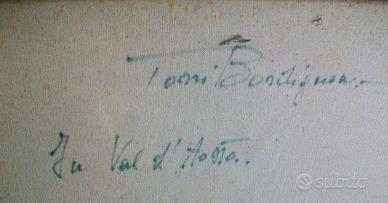 Toni Bordignon
In Val d'Aosta.
subito